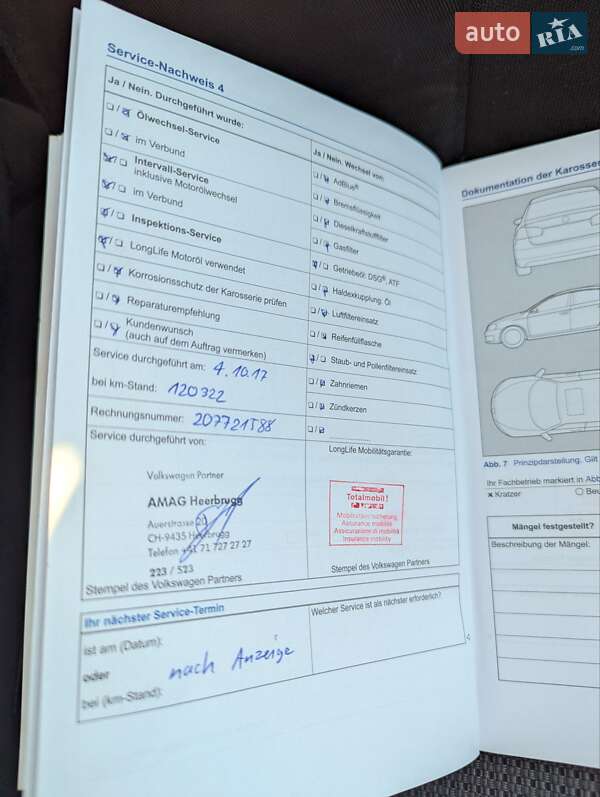 auto RIA .com
Service-Nachweis 4
Ja / Nein. Durchgeführt wurde:
/ Ölwechsel-Service
/ im Verbund
/ Intervall-Service
inklusive Motorölwechsel
/ im Verbund
/ Inspektions-Service
/ LongLife Motoröl verwendet
/ Korrosionsschutz der Karosserie prüfen
/ Reparaturempfehlung
/ Kundenwunsch
(auch auf dem Auftrag vermerken)
Service durchgeführt am: 4.10.17
bei km-Stand: 120322
Rechnungsnummer: 207721588
Service durchgeführt von:
Volkswagen Partner
AMAG Heerbrugg
Auerstrasse 20
CH-9435 Heerbrugg
Telefon +41 71 727 27 27
223 / 523
Stempel des Volkswagen Partners
Ja / Nein. Wechsel von:
/ AdBlue®
/ Bremsflüssigkeit
/ Dieselkraftstofffilter
/ Gasfilter
/ Getriebeöl: DSG®, ATF
/ Haldexkupplung: Öl
/ Luftfiltereinsatz
/ Reifenfüllflasche
/ Staub- und Pollenfiltereinsatz
/ Zahnriemen
/ Zündkerzen
/
LongLife Mobilitätsgarantie:
Totalmobil!
Mobilitätsversicherung
Assurance mobilité
Assicurazione di mobilità
Insurance mobility
Stempel des Volkswagen Partners
Ihr nächster Service-Termin
ist am (Datum):
oder
bei (km-Stand):
nach Anzeige
Welcher Service ist als nächster erforderlich?
Dokumentation der Karosser
Abb. 7 Prinzipdarstellung. Gilt
Ihr Fachbetrieb markiert in Abb
x Kratzer
Beu
Mängel festgestellt?
Beschreibung der Mängel: